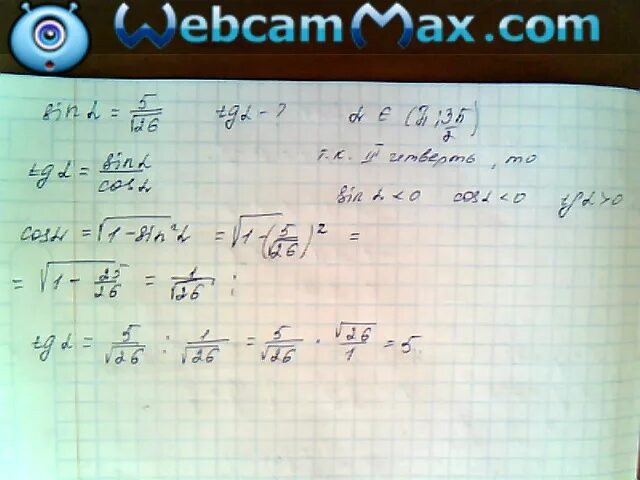 WebcamMax.com
sin α = 5/√26 tg α - ? α ∈ (π; 3π/2)
tg α = sin α / cos α
т.к. III четверть, то
sin α < 0 cos α < 0 tg α > 0
cos α = √(1 - sin²α) = √(1 - (5/√26)²) =
= √(1 - 25/26) = 1/√26 ;
tg α = 5/√26 : 1/√26 = 5/√26 · √26/1 = 5